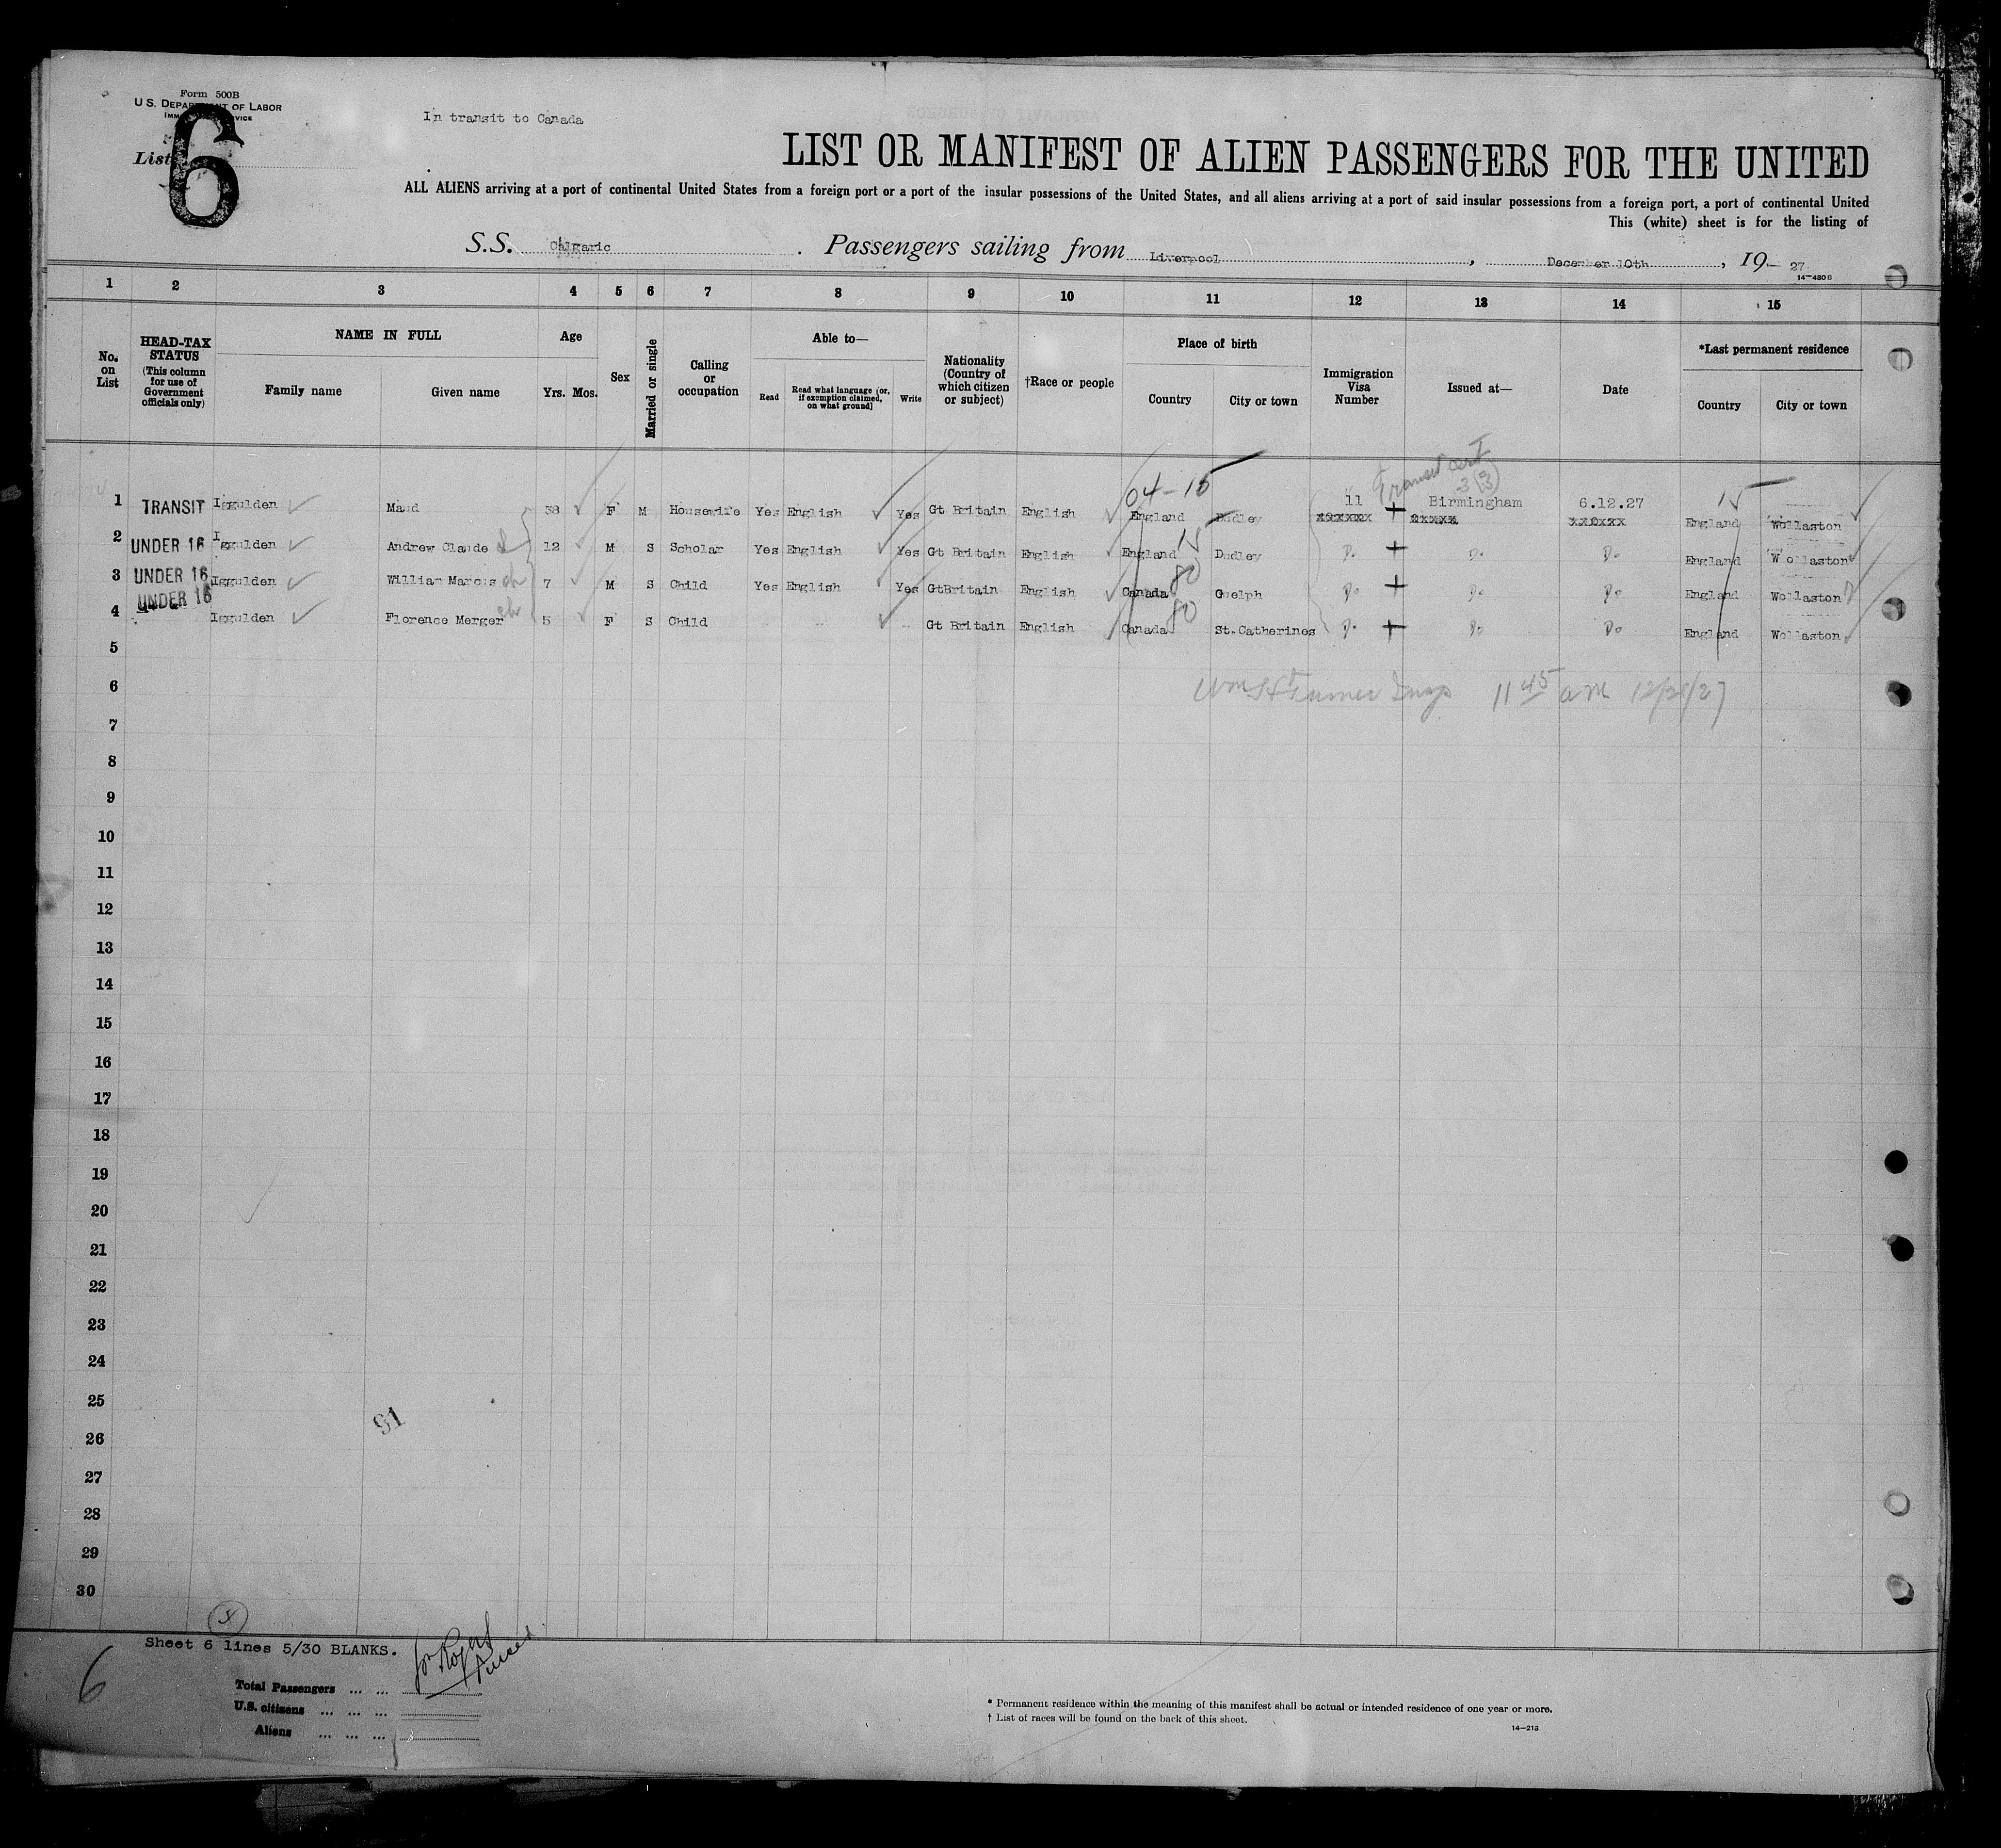 Form 500B
U.S. DEPARTMENT OF LABOR
In transit to Canada
List 6
LIST OR MANIFEST OF ALIEN PASSENGERS FOR THE UNITED
ALL ALIENS arriving at a port of continental United States from a foreign port or a port of the insular possessions of the United States, and all aliens arriving at a port of said insular possessions from a foreign port, a port of continental United
This (white) sheet is for the listing of
S.S. Calgaric. Passengers sailing from Liverpool, December 10th, 19 27
14-4806
1 2 3 4 5 6 7 8 9 10 11 12 13 14 15
No. on List
HEAD-TAX STATUS (This column for use of Government officials only)
NAME IN FULL
Family name Given name
Age
Yrs. Mos.
Sex
Married or single
Calling or occupation
Able to—
Read Read what language (or, if exemption claimed, on what ground) Write
Nationality (Country of which citizen or subject)
†Race or people
Place of birth
Country City or town
Immigration Visa Number
Issued at—
Date
*Last permanent residence
Country City or town
Transit cert
04-15 15
1 TRANSIT Iggulden Maud 38 F M Housewife Yes English Yes Gt Britain English England Dudley 11 Birmingham 6.12.27 England Wollaston
2 UNDER 16 Iggulden Andrew Claude 12 M S Scholar Yes English Yes Gt Britain English England 15 Dudley Do Do Do England Wollaston
3 UNDER 16 Iggulden William Marcus 7 M S Child Yes English Yes GtBritain English Canada 80 Guelph Do Do Do England Wollaston
4 UNDER 16 Iggulden Florence Merger 5 F S Child Gt Britain English Canada 80 St.Catherines Do Do Do England Wollaston
5
6 11 45 am 12/21/27
7
8
9
10
11
12
13
14
15
16
17
18
19
20
21
22
23
24
25
91
26
27
28
29
30
Sheet 6 lines 5/30 BLANKS.
6
Total Passengers ... ...
U.S. citizens ... ... ...
Aliens ... ... ...
* Permanent residence within the meaning of this manifest shall be actual or intended residence of one year or more.
† List of races will be found on the back of this sheet.
14-218